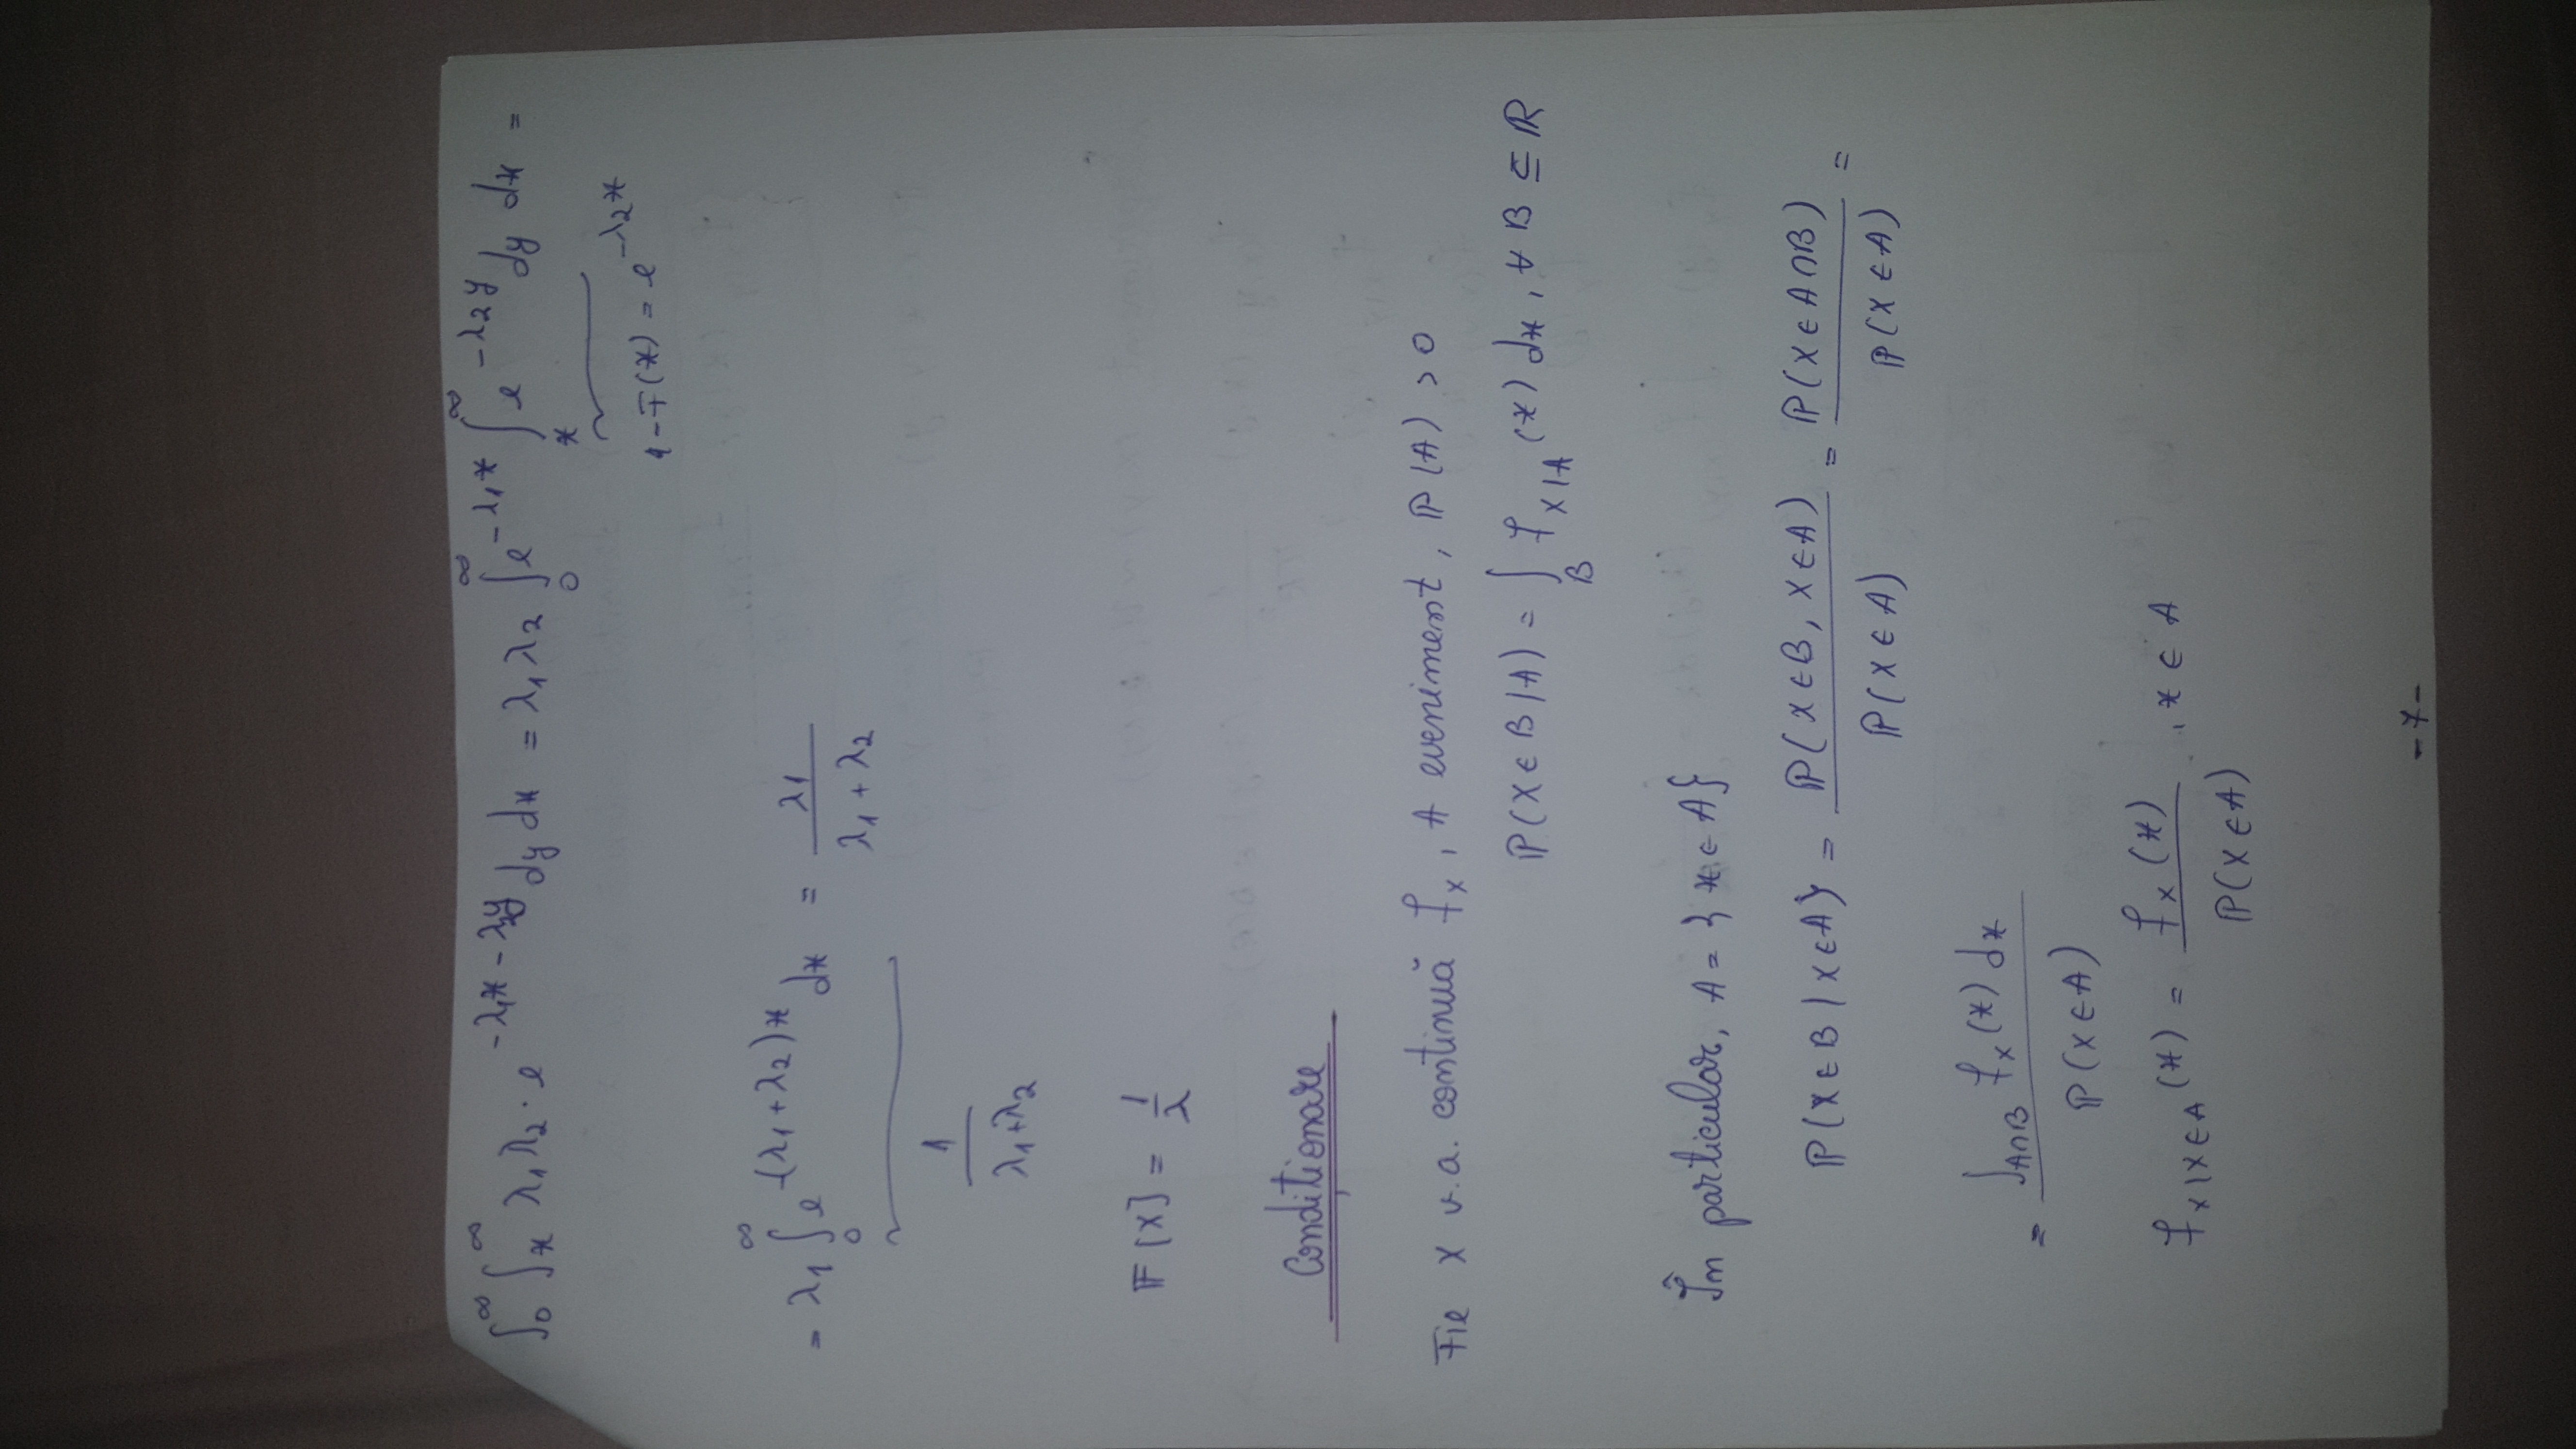 ∫₀^∞ ∫ₓ^∞ λ₁λ₂ · e^(-λ₁x - λ₂y) dy dx = λ₁λ₂ ∫₀^∞ e^(-λ₁x) ∫ₓ^∞ e^(-λ₂y) dy dx =
1-F(x) = e^(-λ₂x)
= λ₁ ∫₀^∞ e^(-(λ₁+λ₂)x) dx = λ₁/(λ₁+λ₂)
1/(λ₁+λ₂)
𝔽[X] = 1/λ
Condiționare
Fie X v.a. continuă f_X, A eveniment, ℙ(A) > 0
ℙ(X∈B|A) = ∫_B f_{X|A}(x) dx, ∀ B ⊆ ℝ
În particular, A = {x∈A}
ℙ(X∈B|X∈A} = ℙ(X∈B, X∈A)/ℙ(X∈A) = ℙ(X∈A∩B)/ℙ(X∈A) =
= ∫_{A∩B} f_X(x) dx / ℙ(X∈A)
f_{X|X∈A}(x) = f_X(x)/ℙ(X∈A), x ∈ A
-7-